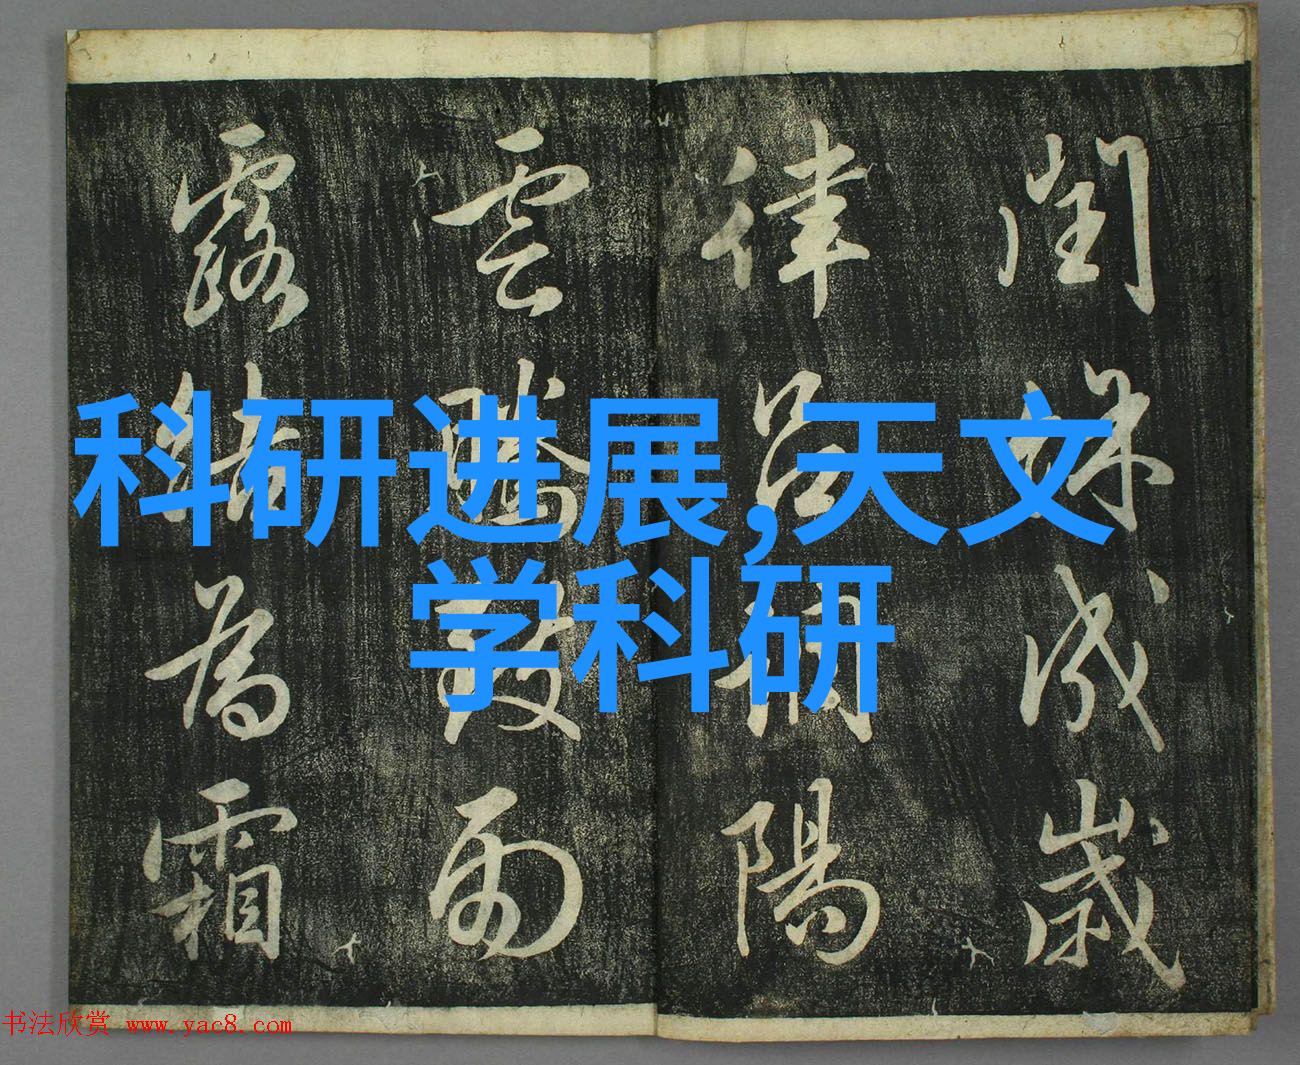 閏餘成歲
律呂調陽
雲騰致雨
露結為霜
科研进展,天文
学科研
书法欣赏 www.yac8.com